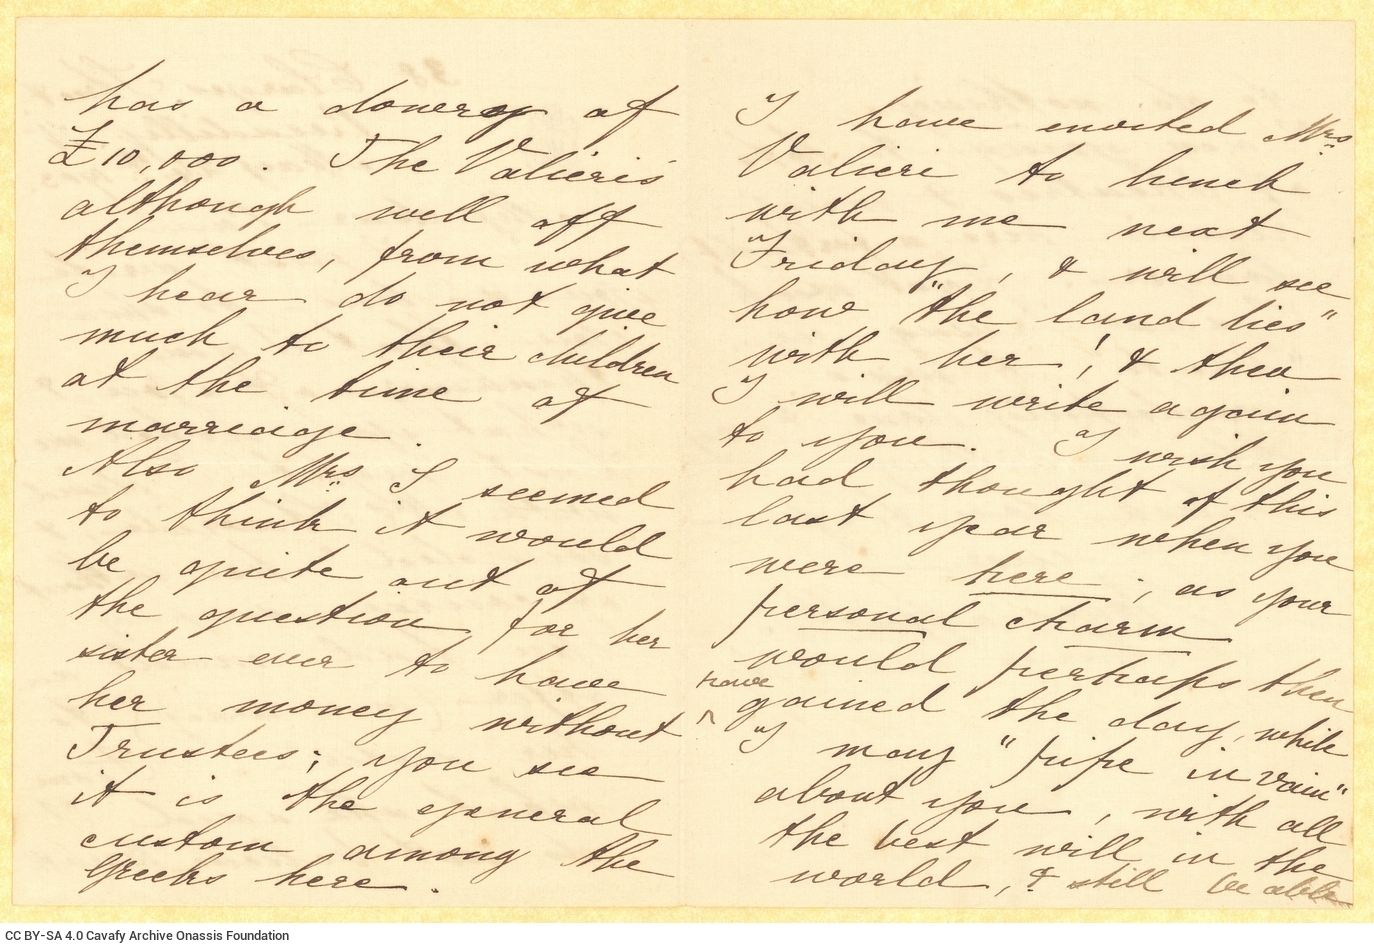 has a dowery of
£10,000. The Valieri's
although well off
themselves, from what
I hear do not give
much to their children
at the time of
marriage.
Also Mrs I seemed
to think it would
be quite out of
the question for her
sister ever to have
her money without
Trustees; you see
it is the general
custom among the
Greeks here.
I have invited Mrs
Valieri to lunch
with me next
Friday, & will see
how "the land lies"
with her! & then
I will write again
to you. I wish you
had thought of this
last year when you
were here; as your
personal charm
would perhaps then
have
gained the day, while
I may "pipe in vain"
about you, with all
the best will in the
world, & still be able
CC BY-SA 4.0 Cavafy Archive Onassis Foundation